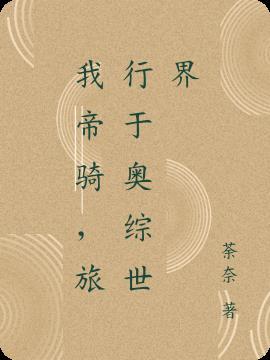 我帝骑，旅
行于奥综世
界
荼奈 著